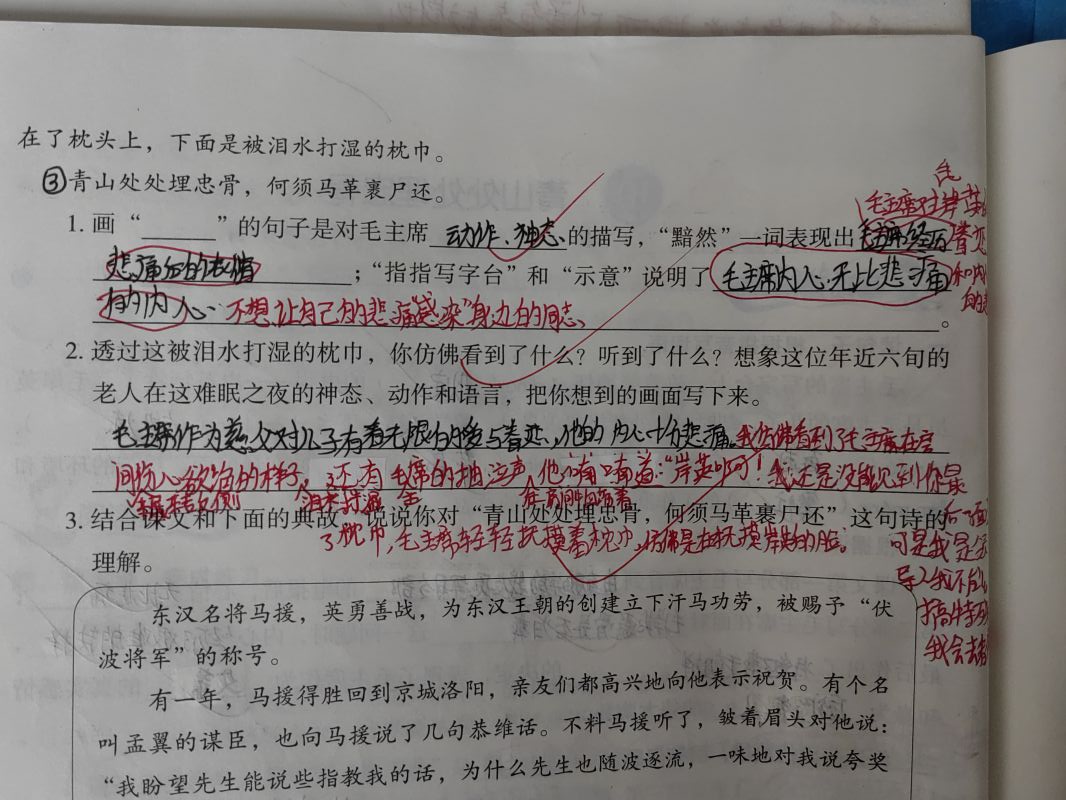 在了枕头上，下面是被泪水打湿的枕巾。
③青山处处埋忠骨，何须马革裹尸还。
毛主席对岸英
1. 画“______”的句子是对毛主席 动作、神态 的描写，“黯然”一词表现出 毛主席经历
悲痛后的表情；“指指写字台”和“示意”说明了 毛主席内心无比悲痛
的内心 不想让自己的悲痛感染“身边的同志。
2. 透过这被泪水打湿的枕巾，你仿佛看到了什么？听到了什么？想象这位年近六旬的
老人在这难眠之夜的神态、动作和语言，把你想到的画面写下来。
毛主席作为慈父对儿子有着无限的爱与眷恋，他的内心十分悲痛。我仿佛看到了毛主席在房
间伤心欲绝的样子，还有毛主席的抽泣声，他喃喃道：“岸英啊！我还是没能见到你最
辗转反侧 泪水打湿
了枕巾，毛主席轻轻抚摸着枕巾，仿佛是在抚摸岸英的脸。
后一面
可是我是
导人我不能
搞特
我会去
3. 结合课文和下面的典故，说说你对“青山处处埋忠骨，何须马革裹尸还”这句诗的
理解。
东汉名将马援，英勇善战，为东汉王朝的创建立下汗马功劳，被赐予“伏
波将军”的称号。
有一年，马援得胜回到京城洛阳，亲友们都高兴地向他表示祝贺。有个名
叫孟翼的谋臣，也向马援说了几句恭维话。不料马援听了，皱着眉头对他说：
“我盼望先生能说些指教我的话，为什么先生也随波逐流，一味地对我说夸奖